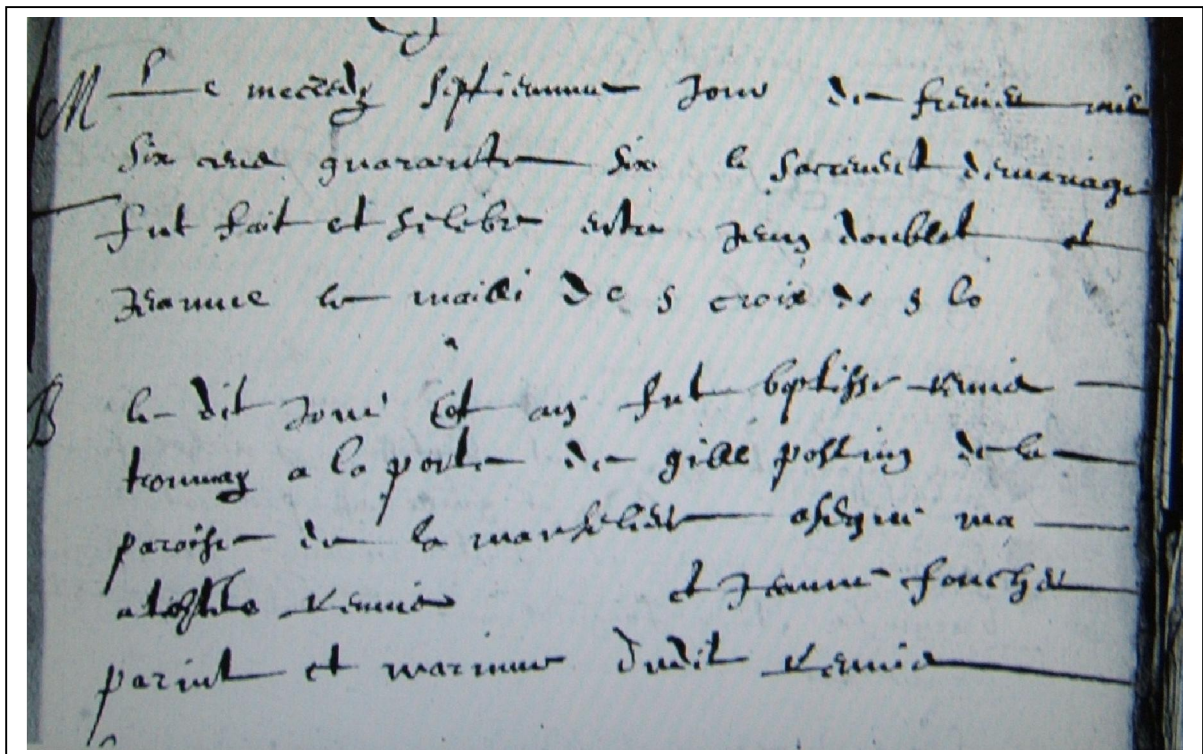 M Le mecredy septiemme Jour de fevrier mil
six cens quarante six le sacrement de mariage
fut fait et selebre entre Jean doublet et
Jeanne le de s croix de s lo
B le dit Jour et an fut baptisse
trouvay a la porte de gille postin de la
paroisse de la
et Jeanne fouchet
parint et marinne dudit